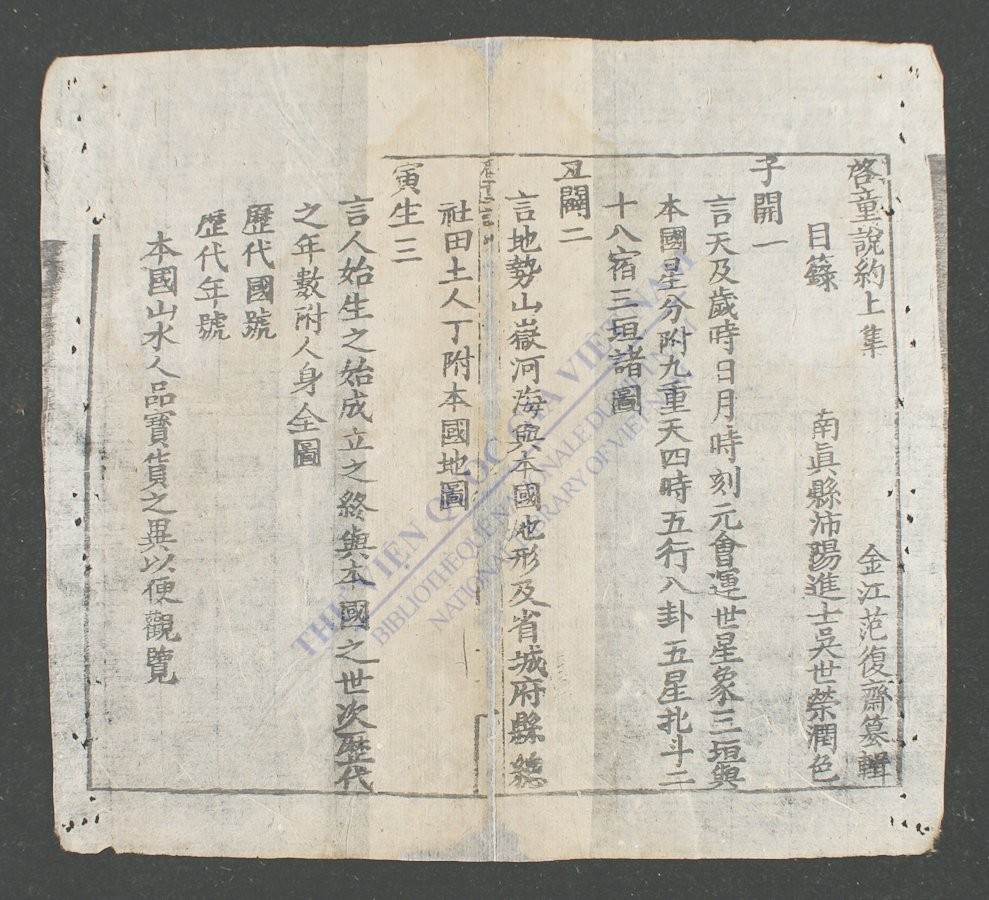 啓童說約上集
金江范復齋纂輯
目籙
南眞縣沛陽進士吳世榮潤色
子開一
言天及歲時日月時刻元會運世星象三垣與
本國星分附九重天四時五行八卦五星北斗二
十八宿三垣諸圖
丑闢二
言地勢山嶽河海與本國地形及省城府縣總
社田土人丁附本國地圖
寅生三
言人始生之始成立之終與本國之世次歷代
之年數附人身全圖
歷代國號
歷代年號
本國山水人品寶貨之異以便觀覽
THƯ VIỆN QUỐC GIA VIỆT NAM
BIBLIOTHÈQUE NATIONALE DU VIETNAM
NATIONAL LIBRARY OF VIETNAM